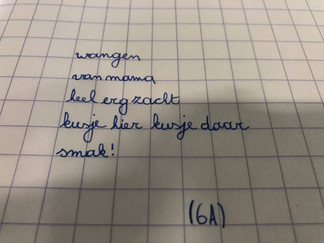 wangen
van mama
heel erg zacht
kusje hier kusje daar
smak!
(6A)